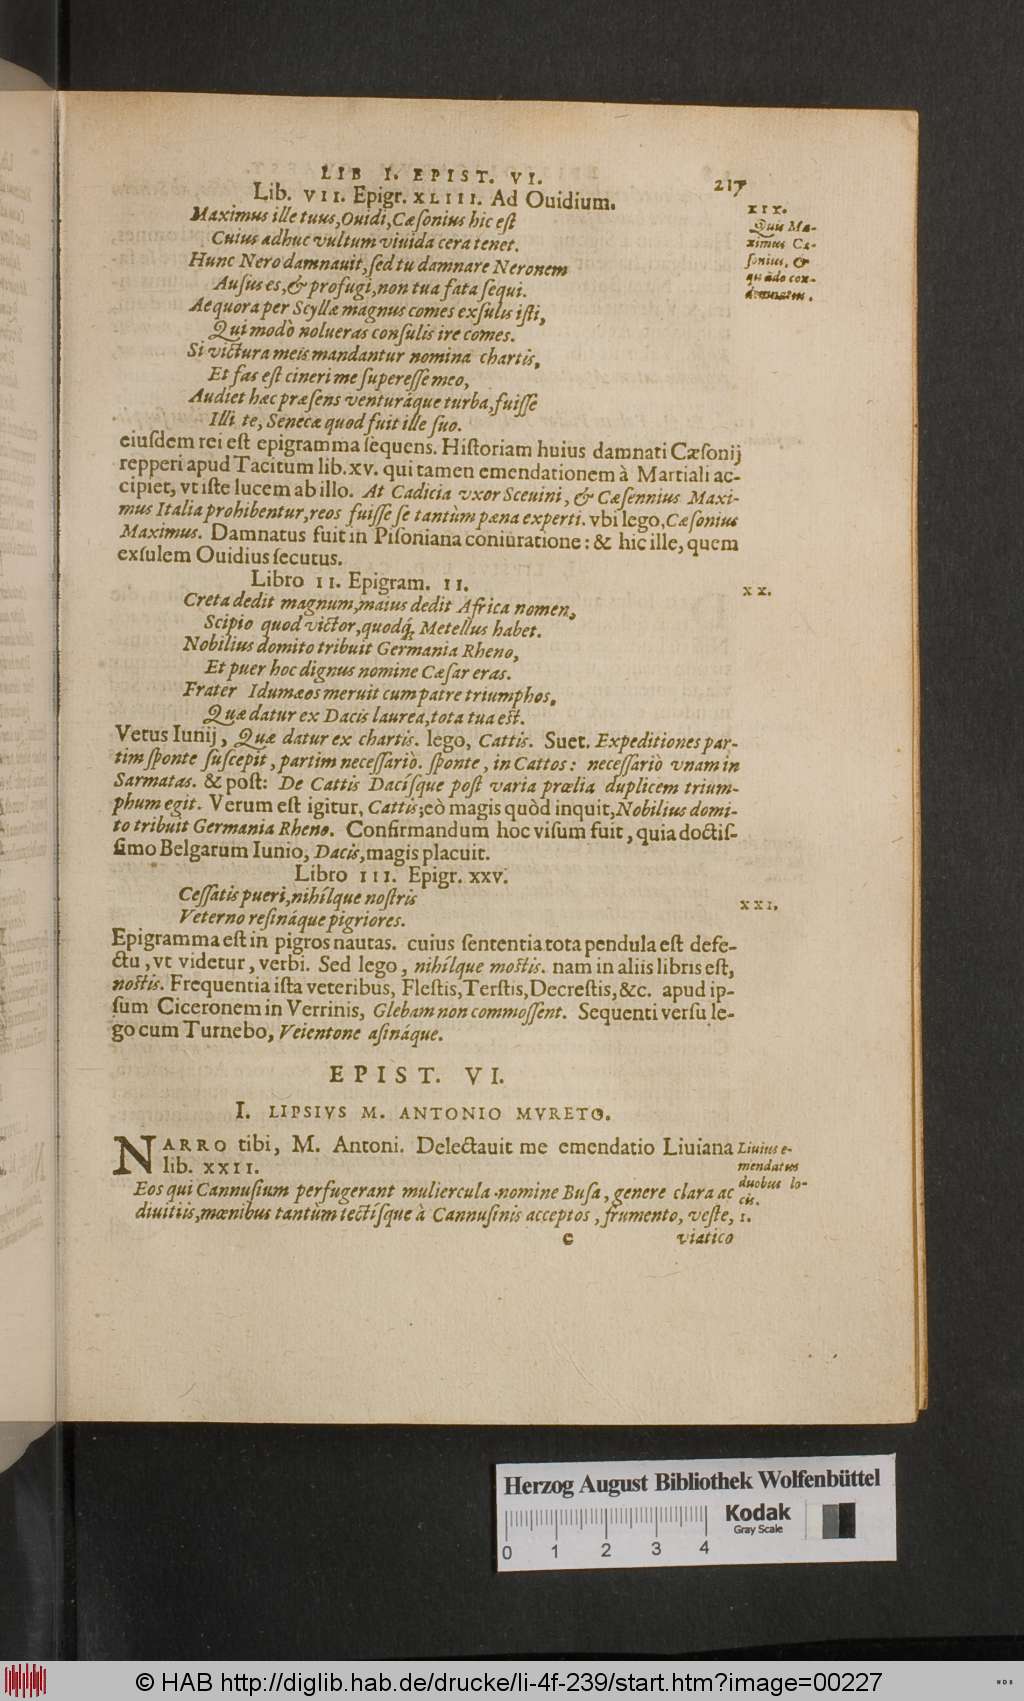 LIB I. EPIST. VI.
217
Lib. VII. Epigr. XLIII. Ad Ouidium.
Maximus ille tuus, Ouidi, Cæſonius hic eſt
Cuius adhuc vultum viuida cera tenet.
Hunc Nero damnauit, ſed tu damnare Neronem
Auſus es, & profugi, non tua fata ſequi.
Aequora per Scyllæ magnus comes exſulis iſti,
Qui modò nolueras conſulis ire comes.
Si victura meis mandantur nomina chartis,
Et fas eſt cineri me ſupereſſe meo,
Audiet hæc præſens venturáque turba, fuiſſe
Illi te, Senecæ quod fuit ille ſuo.
XIX.
Quis Ma-
ximus Cæ-
ſonius, &
quādo con-
demnatus.
eiuſdem rei eſt epigramma ſequens. Hiſtoriam huius damnati Cæſonij
repperi apud Tacitum lib. xv. qui tamen emendationem à Martiali ac-
cipiet, vt iſte lucem ab illo. At Cadicia vxor Sceuini, & Cæſennius Maxi-
mus Italia prohibentur, reos fuiſſe ſe tantùm pœna experti. vbi lego, Cæſonius
Maximus. Damnatus fuit in Piſoniana coniuratione: & hic ille, quem
exſulem Ouidius ſecutus.
Libro II. Epigram. II.
XX.
Creta dedit magnum, maius dedit Africa nomen,
Scipio quod victor, quodq́; Metellus habet.
Nobilius domito tribuit Germania Rheno,
Et puer hoc dignus nomine Cæſar eras.
Frater Idumæos meruit cum patre triumphos,
Quæ datur ex Dacis laurea, tota tua eſt.
Vetus Iunij, Quæ datur ex chartis. lego, Cattis. Suet. Expeditiones par-
tim ſponte ſuſcepit, partim neceſſariò. ſponte, in Cattos: neceſſariò vnam in
Sarmatas. & poſt: De Cattis Daciſque poſt varia prœlia duplicem trium-
phum egit. Verum eſt igitur, Cattis; eò magis quòd inquit, Nobilius domi-
to tribuit Germania Rheno. Confirmandum hoc viſum fuit, quia doctiſ-
ſimo Belgarum Iunio, Dacis, magis placuit.
Libro III. Epigr. XXV.
XXI.
Ceſſatis pueri, nihílque noſtris
Veterno reſináque pigriores.
Epigramma eſt in pigros nautas. cuius ſententia tota pendula eſt defe-
ctu, vt videtur, verbi. Sed lego, nihílque moſtis. nam in aliis libris eſt,
noſtis. Frequentia iſta veteribus, Fleſtis, Terſtis, Decreſtis, &c. apud ip-
ſum Ciceronem in Verrinis, Glebam non commoſſent. Sequenti verſu le-
go cum Turnebo, Veientone aſináque.
EPIST. VI.
I. LIPSIVS M. ANTONIO MVRETO.
NARRO tibi, M. Antoni. Delectauit me emendatio Liuiana
lib. XXII.
Liuius e-
mendatus
duobus lo-
cis.
Eos qui Cannuſium perfugerant muliercula nomine Buſa, genere clara ac
diuitiis, mœnibus tantùm tectíſque à Cannuſinis acceptos, frumento, veſte,
1.
c
viatico
Herzog August Bibliothek Wolfenbüttel
Kodak
Gray Scale
0 1 2 3 4
© HAB http://diglib.hab.de/drucke/li-4f-239/start.htm?image=00227